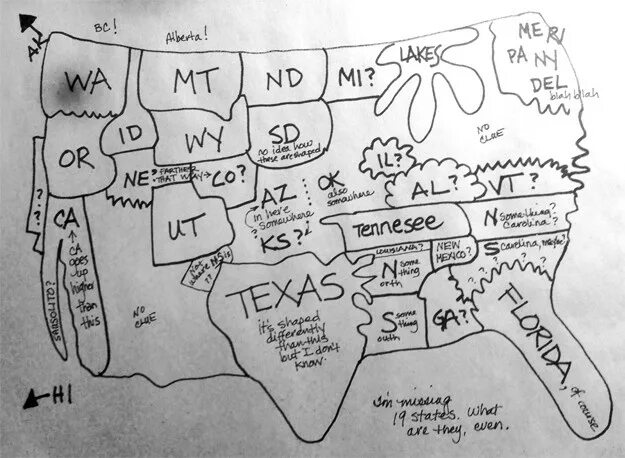 BC!
Alberta!
A
WA
MT
ND
MI?
LAKES
ME RI
PA NY
DEL
blah blah
OR
ID
WY
SD
no idea how
these are shaped
NO
CLUE
NE?
FARTHER
THAT WAY →
CO?
IL?
AL?
VT?
AZ
in here
somewhere
?
KS?
OK
also
somewhere
UT
Tennesee
N something?
Carolina?
S Carolina, maybe?
LOUISIANA?
NEW
MEXICO?
Not
where MS is
??
???
CA
↑
CA
goes
up
higher
than
this
SAUSOLITO?
NO
CLUE
TEXAS
it's shaped
differently
than this
but I don't
know.
N some
thing
orth
S some
thing
outh
GA?
? ? ? ? ?
FLORIDA,
of course
HI
I'm missing
19 states. What
are they, even.